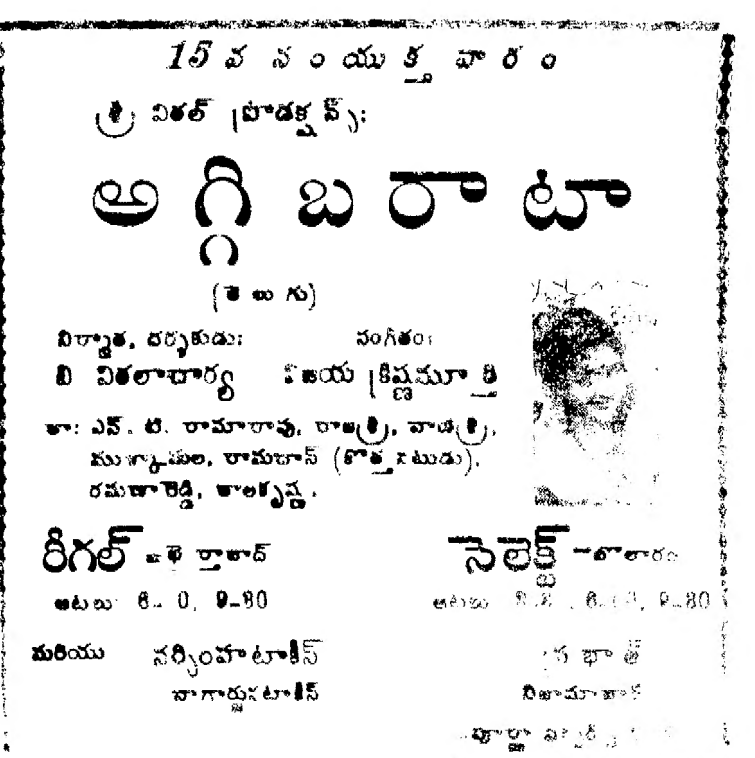 15 వ సంయుక్త వారం
శ్రీ విఠల్ ప్రొడక్షన్స్:
అగ్గి బరాటా
(తెలుగు)
నిర్మాత, దర్శకుడు: సంగీతం:
బి విఠలాచార్య విజయ క్రిష్ణమూర్తి
తా: ఎన్. టి. రామారావు, రాజశ్రీ, వాణిశ్రీ,
ముక్కామల, రామదాస్ (కొత్తనటుడు),
రమణారెడ్డి, బాలకృష్ణ.
రీగల్ సెలెక్ట్ - బొలారం
ఆటలు 9-30 ఆటలు 9-30
మరియు నర్సింహ టాకీస్ ప్రభాత్
నాగార్జున టాకీస్ నిజామాబాద్
పూర్ణా